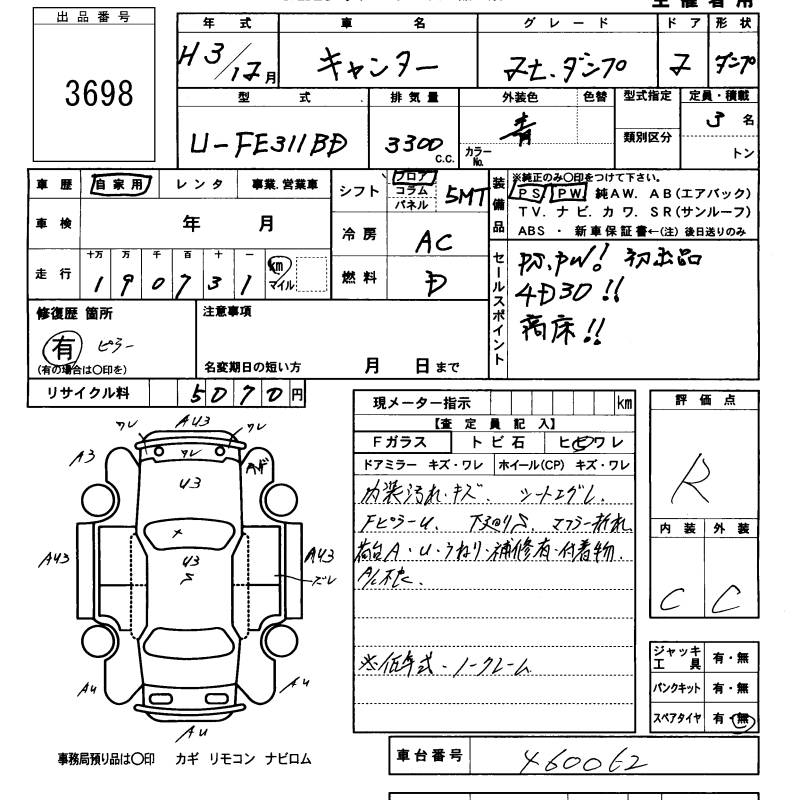 主催者用
出品番号
3698
年式 車名 グレード ドア 形状
H3/12月 キャンター 2t.ダンプ 2 ダンプ
型式 排気量 外装色 色替 型式指定 定員・積載
U-FE311BD 3300 c.c. 青 カラーNo. 類別区分 3名
トン
車歴 自家用 レンタ 事業.営業車
シフト フロア コラム パネル 5MT
装備品
※純正のみ○印をつけて下さい。
PS PW 純AW. AB(エアバック)
TV. ナビ. カワ. SR(サンルーフ)
ABS ・ 新車保証書←(注) 後日送りのみ
車検 年 月
冷房 AC
走行 十万 万 千 百 十 一
1 9 0 7 3 1 km マイル
燃料 D
セールスポイント
PS.PW! 初出品
4D30!!
高床!!
修復歴 箇所
有 ピラー
(有の場合は○印を)
注意事項
名変期日の短い方 月 日まで
リサイクル料 5070円
現メーター指示 km
【査定員記入】
Fガラス トビ石 ヒビワレ
ドアミラー キズ・ワレ ホイール(CP) キズ・ワレ
内装汚れ・キズ. シートエグレ.
Fピラーu. 下廻りS. マフラー折れ
荷台A・U・うねり・補修有・付着物.
A/C不良.
※低年式・ノークレーム
評価点
R
内装 外装
C C
ジャッキ 工具 有・無
パンクキット 有・無
スペアタイヤ 有・無
ワレ A43 ワレ
ワレ
A3 43 Aキ
×
A43 43 A43
S ズレ
A4 A4
A4
事務局預り品は○印 カギ リモコン ナビロム
車台番号 460062